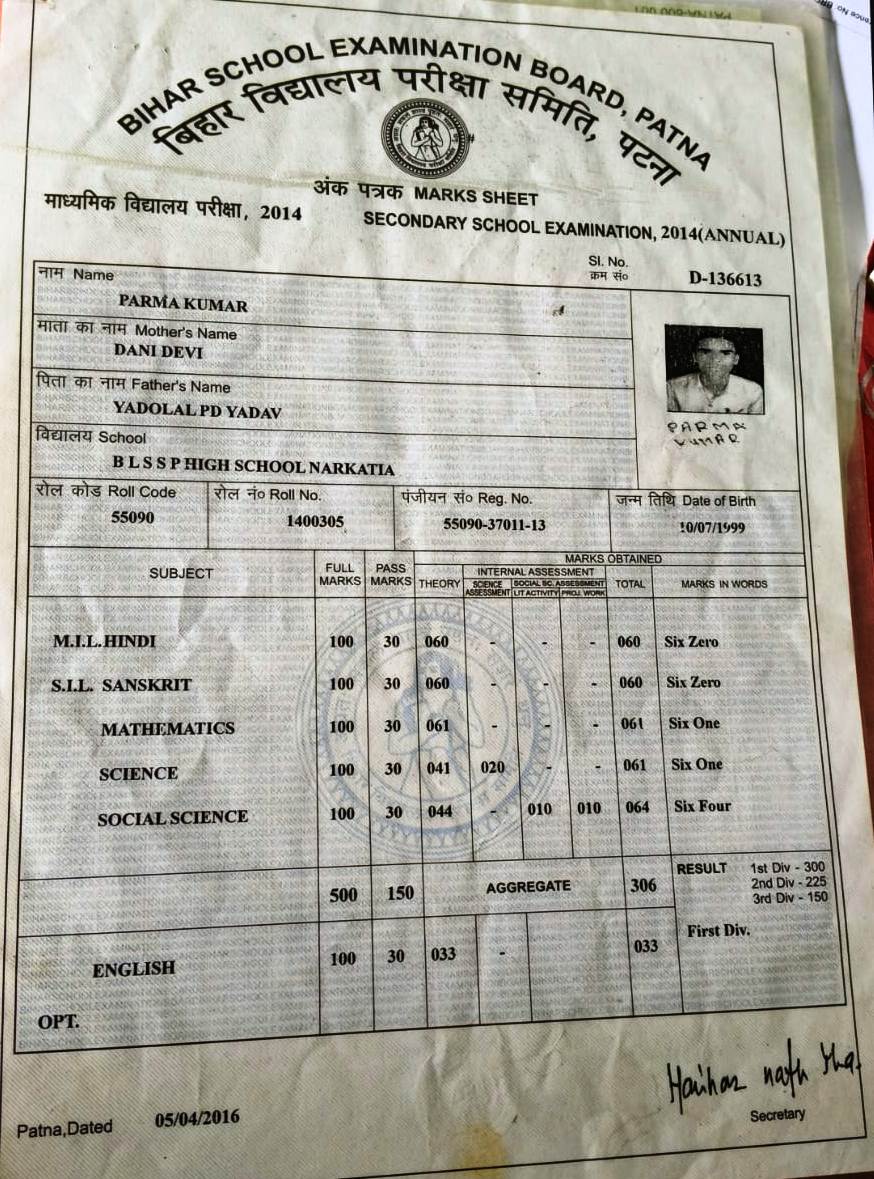 BIHAR SCHOOL EXAMINATION BOARD, PATNA
बिहार विद्यालय परीक्षा समिति, पटना
अंक पत्रक MARKS SHEET
माध्यमिक विद्यालय परीक्षा, 2014
SECONDARY SCHOOL EXAMINATION, 2014(ANNUAL)
Sl. No.
क्रम सं० D-136613
नाम Name
PARMA KUMAR
माता का नाम Mother's Name
DANI DEVI
पिता का नाम Father's Name
YADOLAL PD YADAV
PARMA
KUMAR
विद्यालय School
B L S S P HIGH SCHOOL NARKATIA
रोल कोड Roll Code रोल नं० Roll No. पंजीयन सं० Reg. No. जन्म तिथि Date of Birth
55090 1400305 55090-37011-13 10/07/1999
SUBJECT FULL MARKS PASS MARKS MARKS OBTAINED
THEORY INTERNAL ASSESSMENT TOTAL MARKS IN WORDS
SCIENCE ASSESSMENT SOCIAL SC. ASSESSMENT
LIT ACTIVITY PROJ. WORK
M.I.L.HINDI 100 30 060 - - - 060 Six Zero
S.I.L. SANSKRIT 100 30 060 - - - 060 Six Zero
MATHEMATICS 100 30 061 - - - 061 Six One
SCIENCE 100 30 041 020 - - 061 Six One
SOCIAL SCIENCE 100 30 044 - 010 010 064 Six Four
500 150 AGGREGATE 306
RESULT 1st Div - 300
2nd Div - 225
3rd Div - 150
First Div.
ENGLISH 100 30 033 - 033
OPT.
Patna,Dated 05/04/2016
Secretary